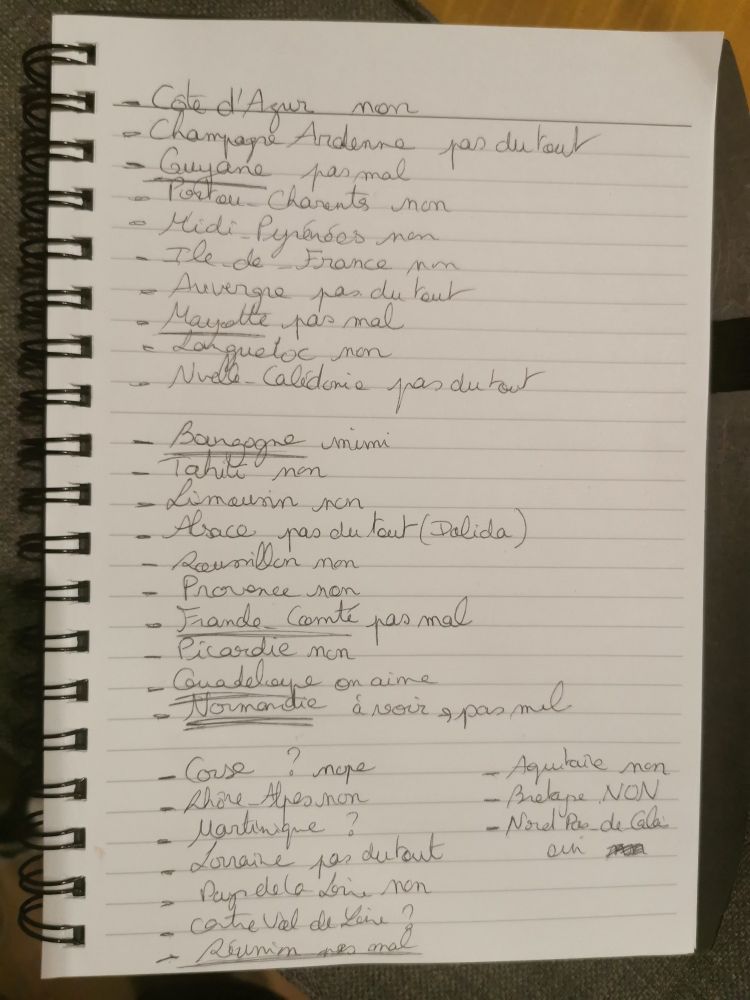 - Côte d'Azur non
- Champagne Ardenne pas du tout
- Guyane pas mal
- Poitou-Charents non
- Midi-Pyrénées non
- Ile-de-France non
- Auvergne pas du tout
- Mayotte pas mal
- Langueloc non
- Nvelle-Calédonie pas du tout
- Bourgogne mimi
- Tahiti non
- Limousin non
- Alsace pas du tout (Dalida)
- Roussillon non
- Provence non
- Franche-Comté pas mal
- Picardie non
- Guadeloupe on aime
- Normandie à voir pas mal
- Corse ? nope
- Rhône-Alpes non
- Martinique ?
- Lorraine pas du tout
- Pays de la Loire non
- Centre Val de Loire ?
- Réunion pas mal
- Aquitaine non
- Bretagne NON
- Nord Pas-de-Calai
oui